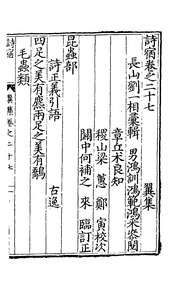 詩宿卷之二十七 翼集
長山劉一相彙輯 男鴻訓鴻範鴻采鴻閣
章丘木良知
稷山梁蕙鄭寅校次
關中何補之來臨訂正
昆蟲部
詩正義引語 古逸
四足之美有麃兩足之美有鷮
毛蟲類
詩宿 翼集卷之二十七